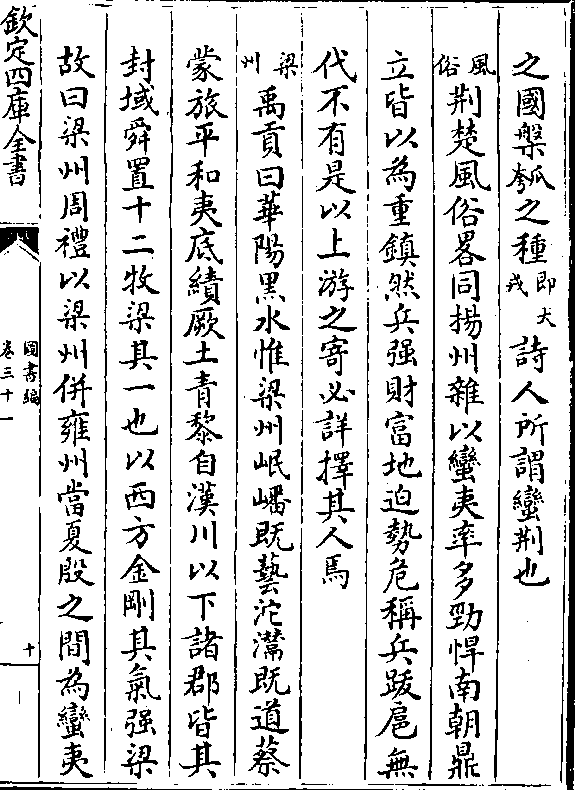 之國槃瓠之種即犬戎詩人所謂蠻荆也
風俗荆楚風俗畧同揚州雜以蠻夷率多勁悍南朝鼎
立皆以為重鎮然兵强財富地迫勢危稱兵跋扈無
代不有是以上游之寄必詳擇其人焉
梁州禹貢曰華陽黑水惟梁州岷嶓既藝沱灊既道蔡
蒙旅平和夷底績厥土青黎自漢川以下諸郡皆其
封域舜置十二牧梁其一也以西方金剛其氣强梁
故曰梁州周禮以梁州併雍州當夏殷之間為蠻夷
欽定四庫全書
圖書編
卷三十一
十